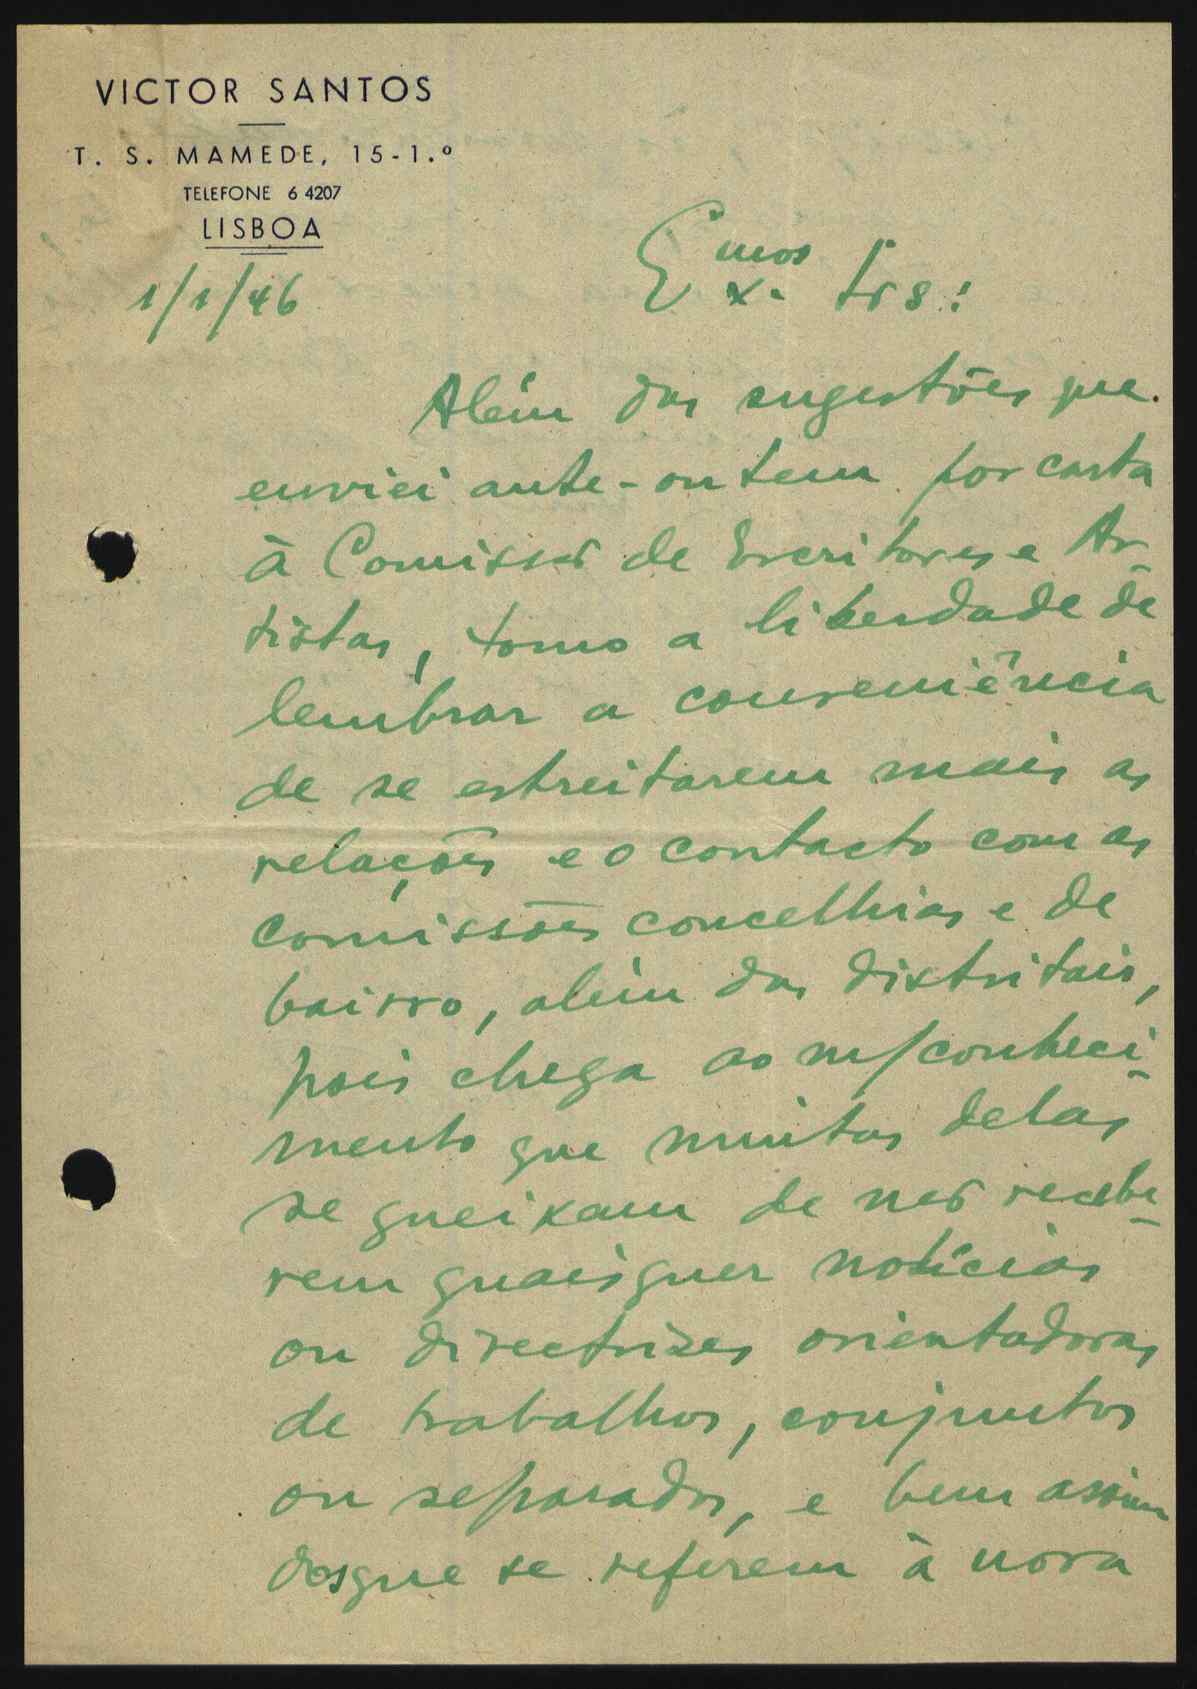 VICTOR SANTOS
T. S. MAMEDE, 15-1.º
TELEFONE 6 4207
LISBOA
1/1/46
Ex.mos Srs:
Além das sugestões que
enviei ante-ontem por carta
à Comissão de Escritores e Ar-
tistas, tomo a liberdade de
lembrar a conveniência
de se estreitarem mais as
relações e o contacto com as
comissões concelhias e de
bairro, além das distritais,
pois chega ao m/conheci-
mento que muitas delas
se queixam de não recebe-
rem quaisquer notícias
ou directrizes orientadoras
de trabalhos, conjuntos
ou separados, e bem assim
dos que se referem à nova